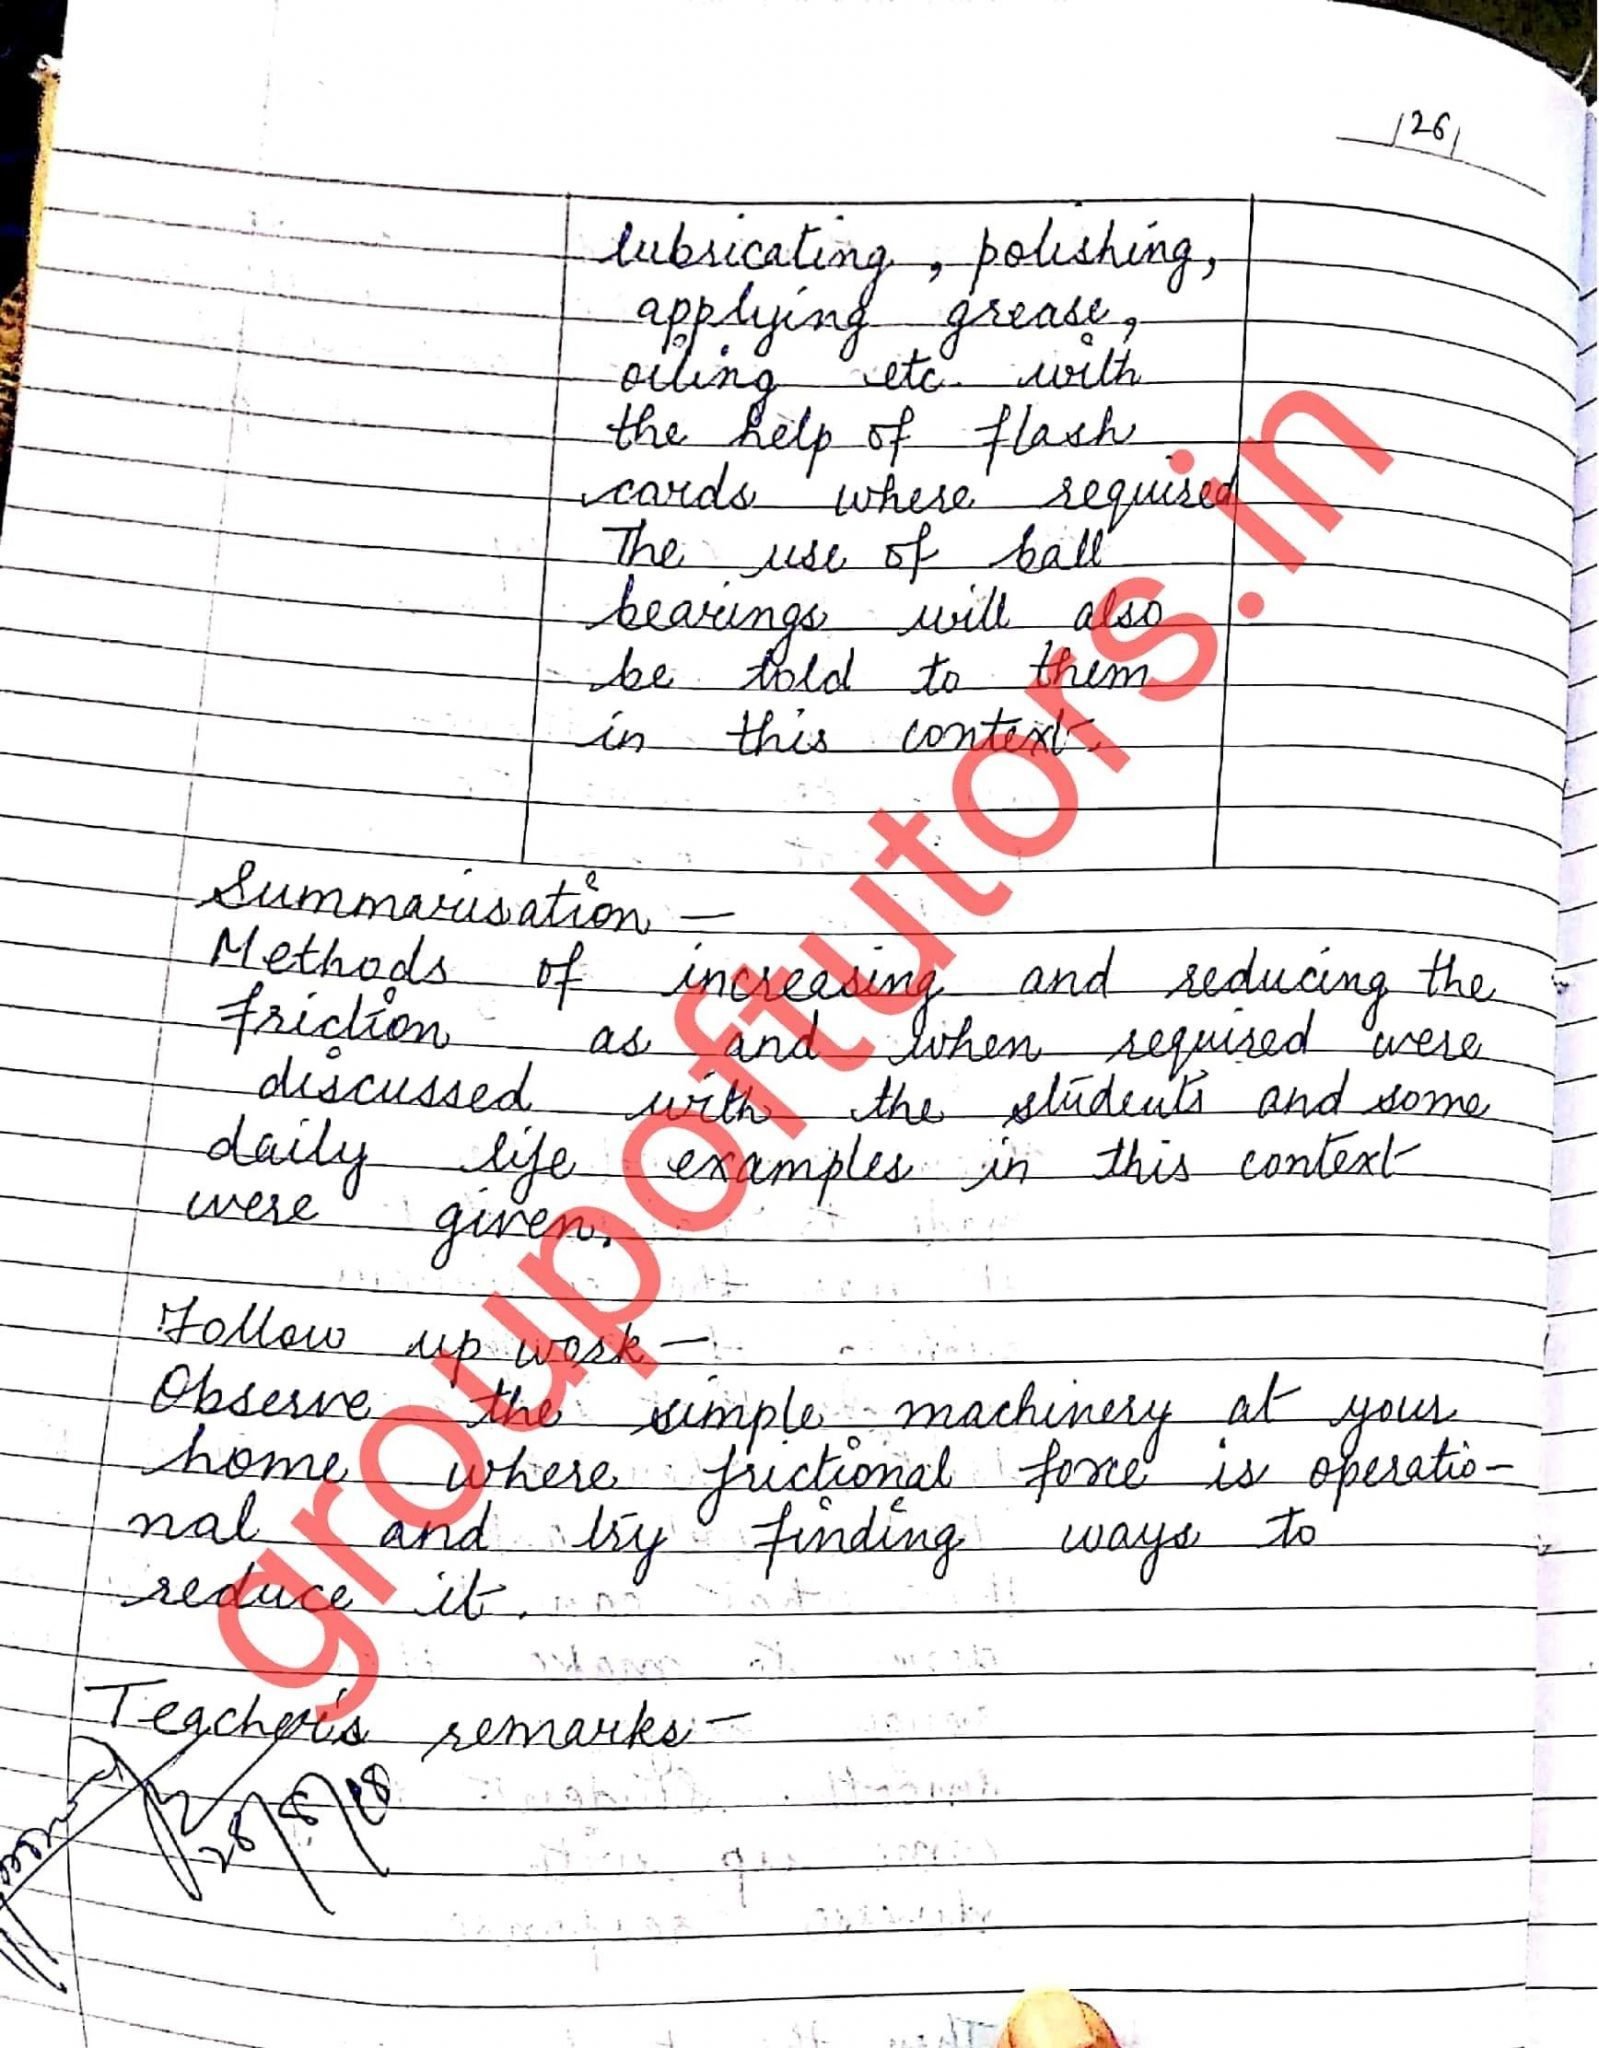 126
lubricating, polishing,
applying grease,
oiling etc. with
the help of flash
cards where required
The use of ball
bearings will also
be told to them
in this context.
Summarisation –
Methods of increasing and reducing the
friction as and when required were
discussed with the students and some
daily life examples in this context
were given.
Follow up work –
Observe the simple machinery at your
home where frictional force is operatio-
nal and try finding ways to
reduce it.
Teacher's remarks –
28/8/18
groupoftutors.in